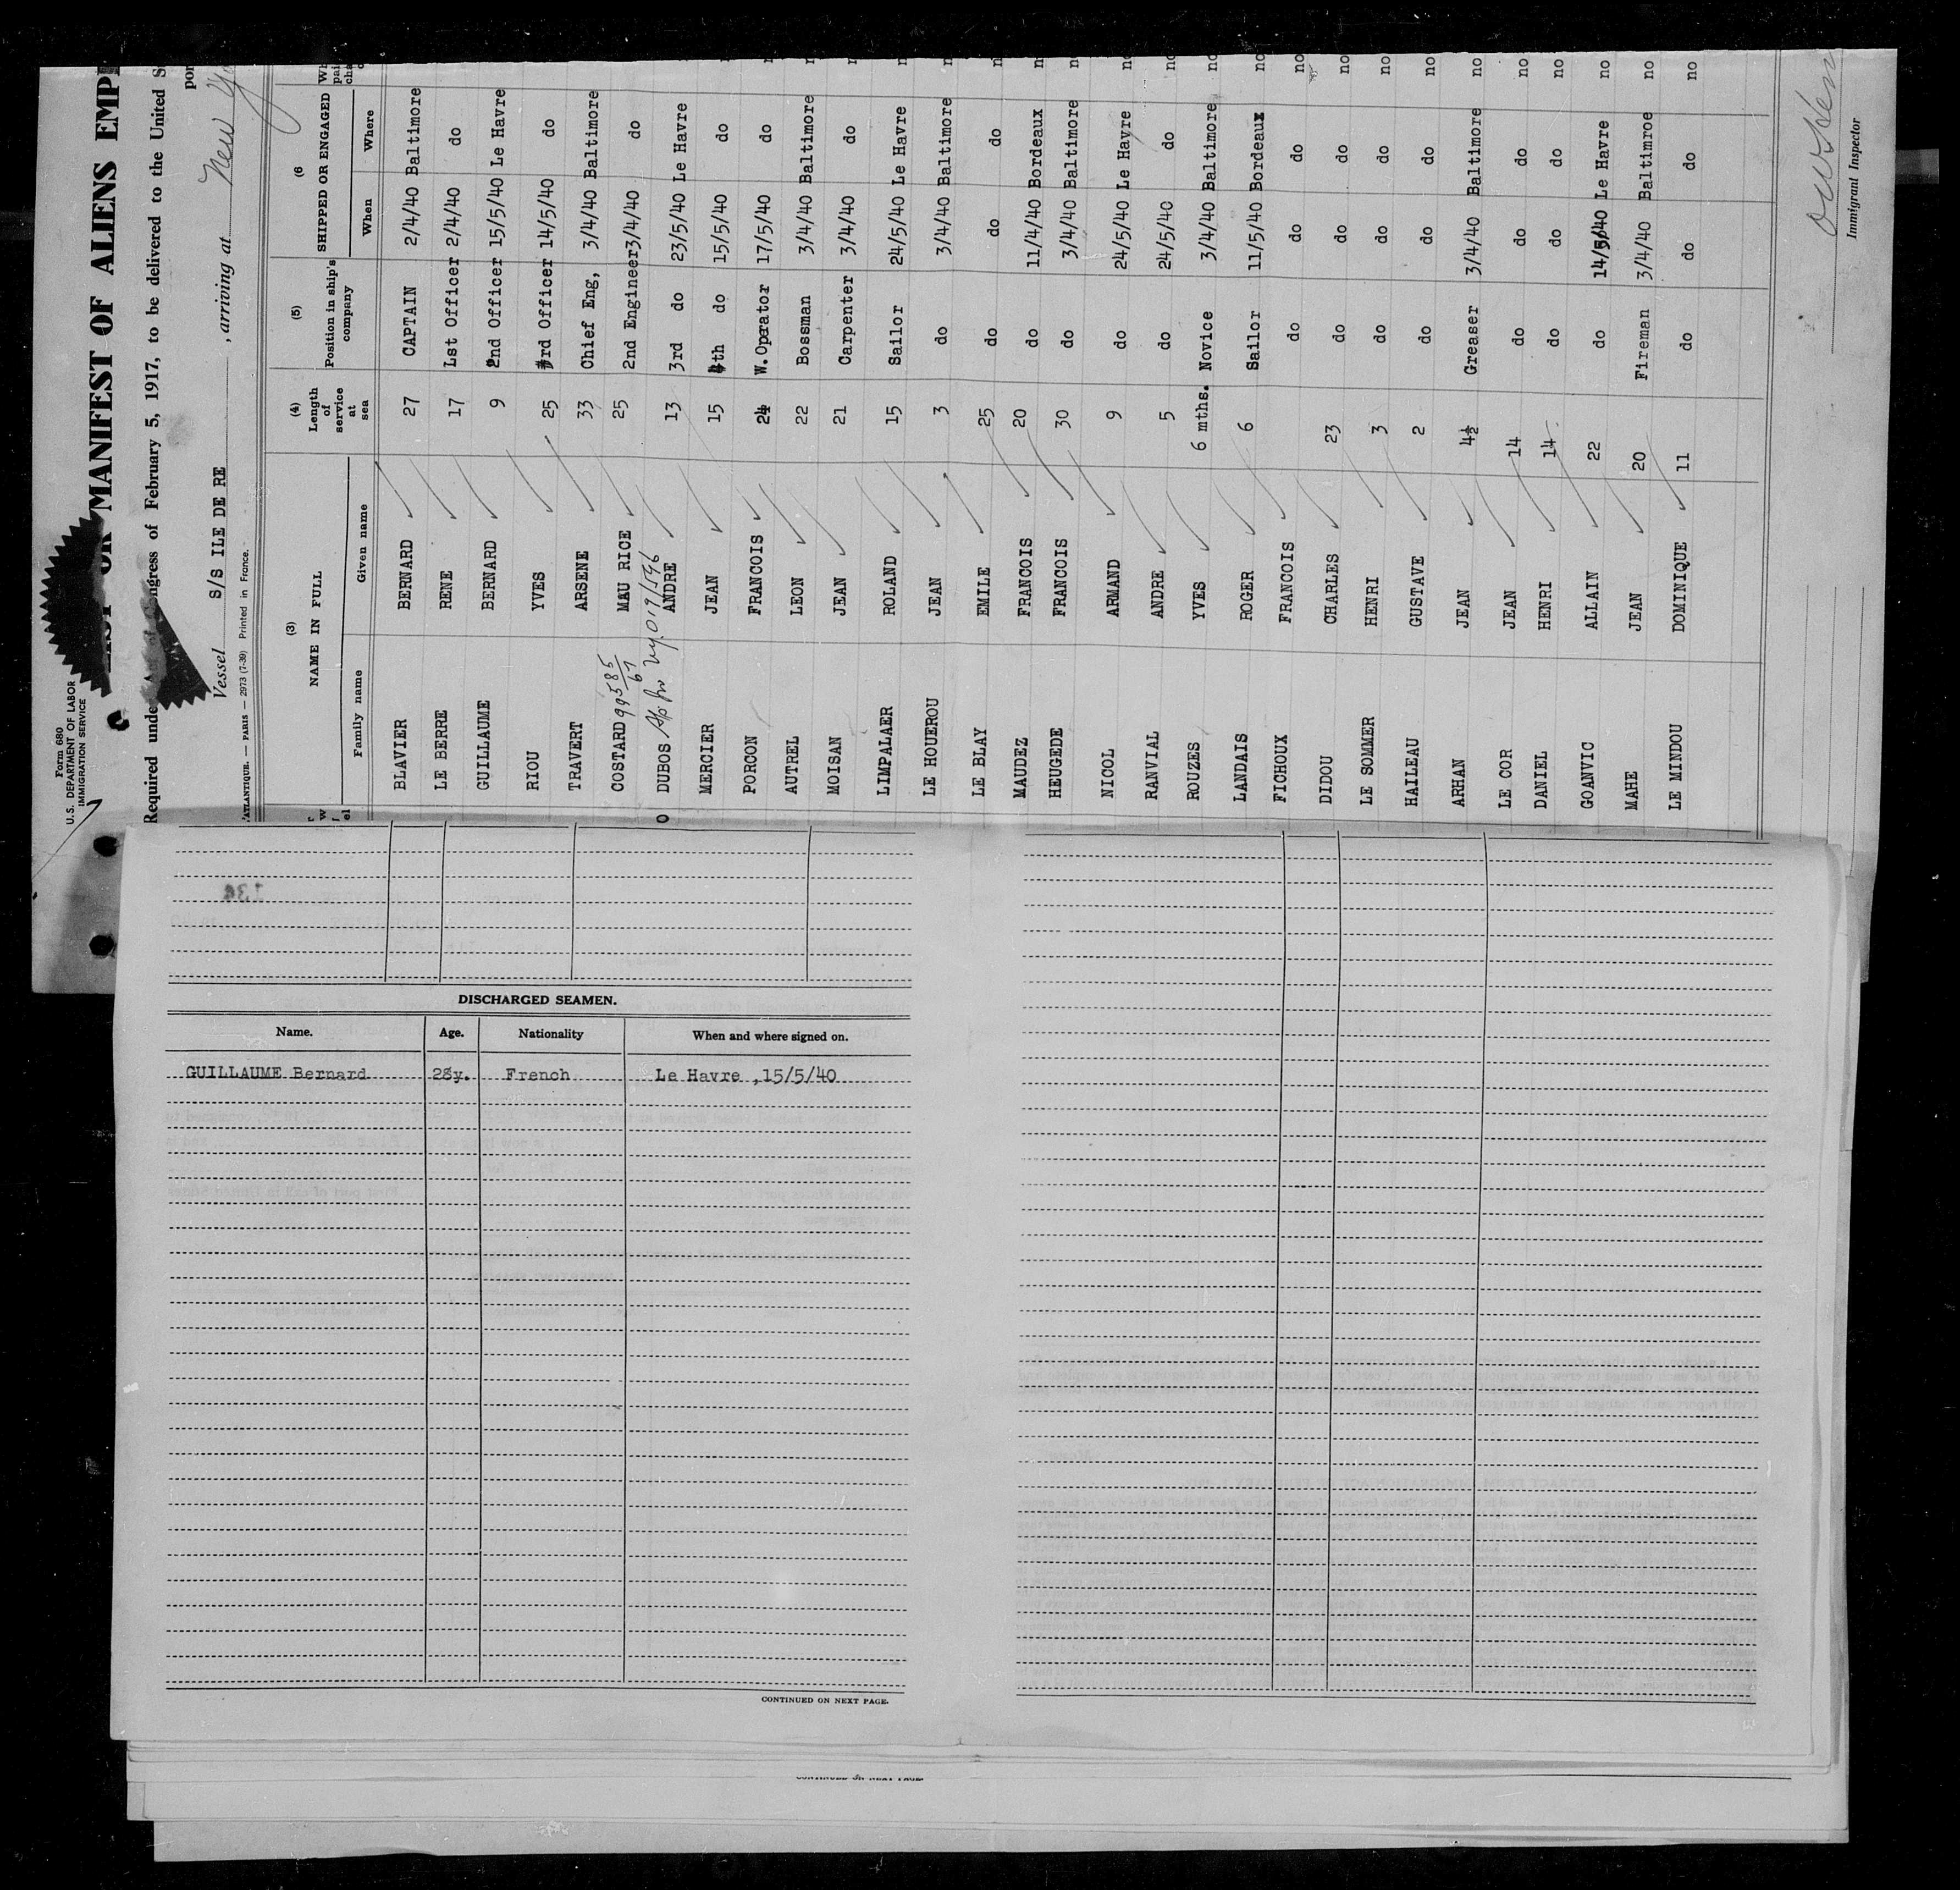 Form 680
U.S. DEPARTMENT OF LABOR
IMMIGRATION SERVICE
OR MANIFEST OF ALIENS EMP
Required under Act of Congress of February 5, 1917, to be delivered to the United S
Vessel S/S ILE DE RE , arriving at New Yo
ATLANTIQUE. — PARIS — 2973 (7-39) Printed in France.
(3) NAME IN FULL
Family name Given name
(4) Length of service at sea
(5) Position in ship's company
(6 SHIPPED OR ENGAGED
When Where
BLAVIER BERNARD 27 CAPTAIN 2/4/40 Baltimore
LE BERRE RENE 17 Lst Officer 2/4/40 do
GUILLAUME BERNARD 9 2nd Officer 15/5/40 Le Havre
RIOU YVES 25 3rd Officer 14/5/40 do
TRAVERT ARSENE 33 Chief Eng, 3/4/40 Baltimore
COSTARD 99585/67 MAU RICE 25 2nd Engineer 3/4/40 do
DUBOS ANDRE 13 3rd do 23/5/40 Le Havre
MERCIER JEAN 15 4th do 15/5/40 do
PORCON FRANCOIS 24 W.Operator 17/5/40 do
AUTREL LEON 22 Bossman 3/4/40 Baltimore
MOISAN JEAN 21 Carpenter 3/4/40 do
LIMPALAER ROLAND 15 Sailor 24/5/40 Le Havre
LE HOUEROU JEAN 3 do 3/4/40 Baltimore
LE BLAY EMILE 25 do do do
MAUDEZ FRANCOIS 20 do 11/4/40 Bordeaux
HEUGEDE FRANCOIS 30 do 3/4/40 Baltimore
NICOL ARMAND 9 do 24/5/40 Le Havre no
RANVIAL ANDRE 5 do 24/5/40 do no
ROUZES YVES 6 mths. Novice 3/4/40 Baltimore no
LANDAIS ROGER 6 Sailor 11/5/40 Bordeaux no
FICHOUX FRANCOIS do do do no
DIDOU CHARLES 23 do do do no
LE SOMMER HENRI 3 do do do no
HAILEAU GUSTAVE 2 do do do no
ARHAN JEAN 4½ Greaser 3/4/40 Baltimore no
LE COR JEAN 14 do do do no
DANIEL HENRI 14 do do do no
GOANVIC ALLAIN 22 do 14/5/40 Le Havre no
MAHE JEAN 20 Fireman 3/4/40 Baltimroe no
LE MINDOU DOMINIQUE 11 do do do no
Immigrant Inspector
DISCHARGED SEAMEN.
Name. Age. Nationality When and where signed on.
GUILLAUME Bernard 28y. French Le Havre ,15/5/40
CONTINUED ON NEXT PAGE.
CONTINUED ON NEXT PAGE.